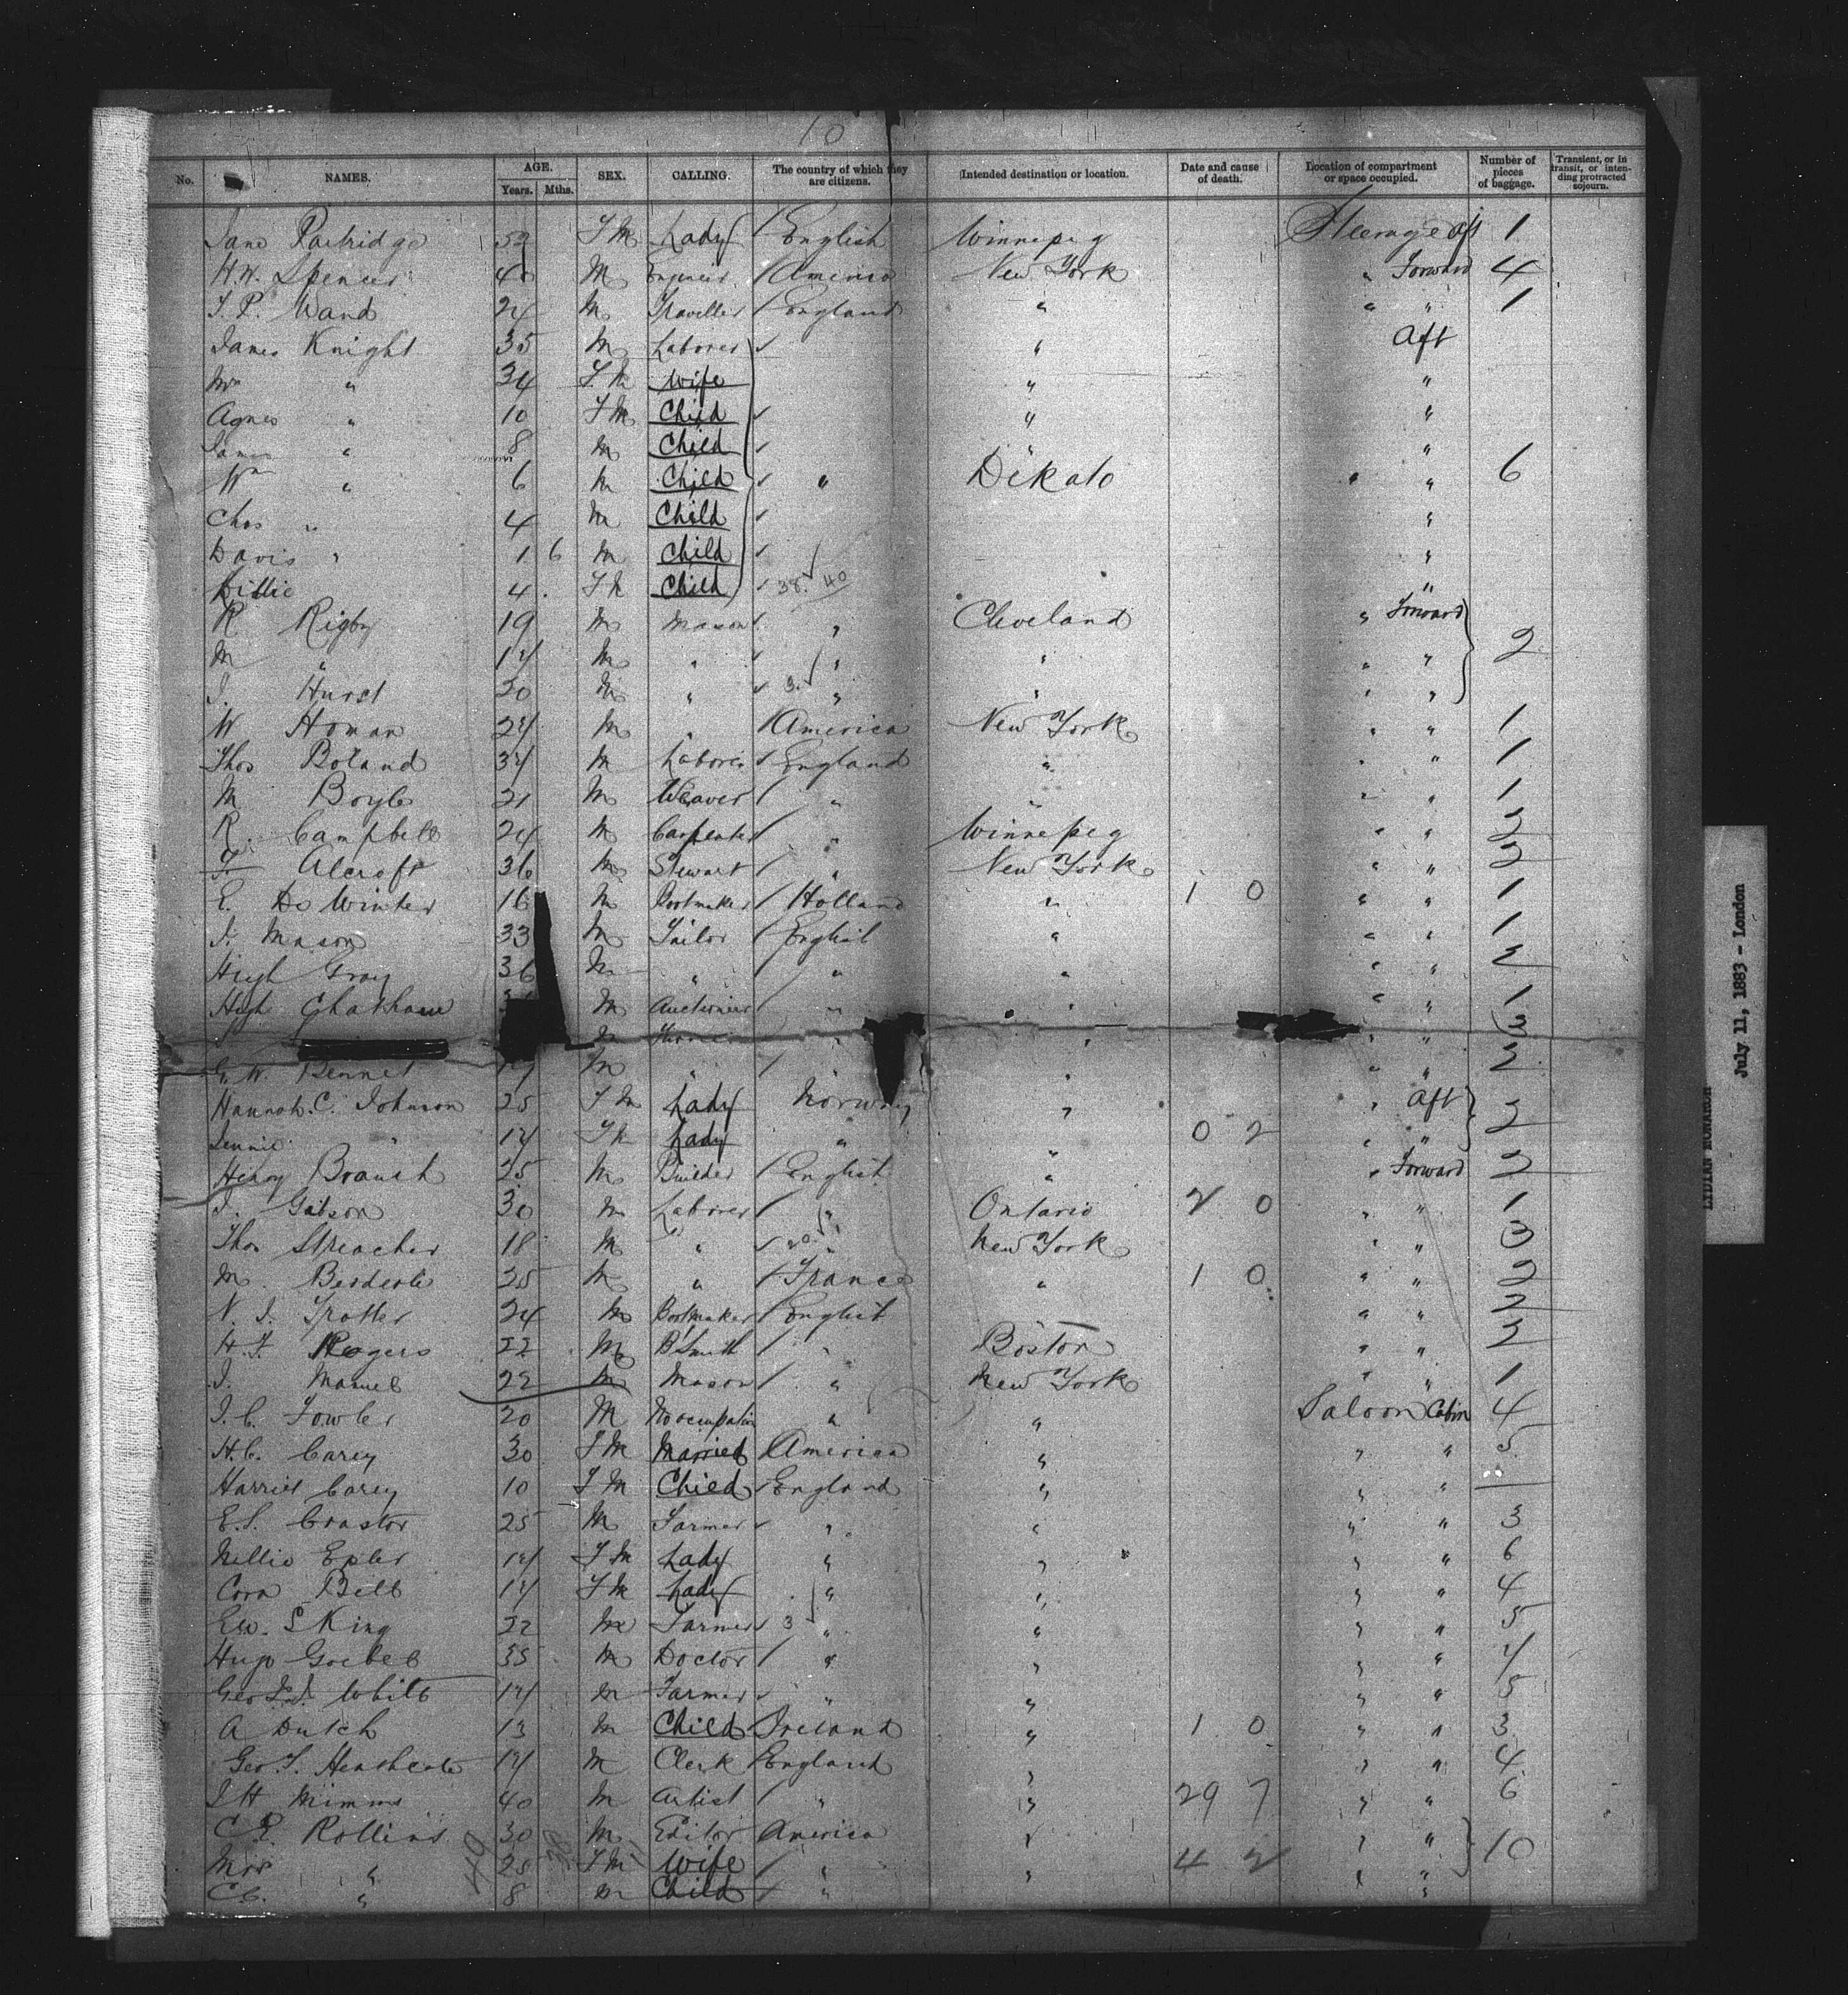 10
No. NAMES. AGE. Years. Mths. SEX. CALLING. The country of which they are citizens. Intended destination or location. Date and cause of death. Location of compartment or space occupied. Number of pieces of baggage. Transient, or in transit, or intending protracted sojourn.
Jane Partridge 52 F M Lady / English Winnepeg Steerage aft 1
H.W. Spencer M Engineer / America New York " Forward 4
T. P. Wand 24 M Traveller / England " " " 1
James Knight 35 M Laborer ✓ " Aft
Mrs " 34 F M Wife " "
Agnes " 10 F M Child ✓ " "
James " 8 M Child ✓ " "
Wm " 6 M Child ✓ " Dekato " " 6
Chas " 4 M Child ✓ "
Davis " 1 6 M Child ✓ "
Lillie 4 F M Child ✓ 38. 40 "
R Rigby 19 M Mason " Cleveland " Forward
M " 17 M " ✓ " " " " 2
J. Hurst 30 M " ✓ 3 " " " "
W Homan 24 M " / America New York " " 1
Thos Boland 34 M Laborer ✓ England " " " 1
M Boyle 21 M Weaver / " " " " 1
R. Campbell 24 M Carpenter / " Winnepeg " " 2
F. Alcroft 36 M Stewart / " New York " " 2
E. De Winter 16 M Bootmaker / Holland " 1 0 " " 1
J. Mason 33 M Tailor / English " " " 1
Hugh Gray 36 M " / " " " " 2
Hugh Chatham M Auctioneer / " " " " 1
M " " " "
G. W. Bennet M " / " " " 2
Hannah. C. Johnson 25 F M Lady Norway " " Aft
Jennie " 17 F M Lady " " 0 2 " " 2
Henry Branch 25 M Builder / English " " Forward 2
J. Gibson 30 M Laborer / " Ontario 2 0 " " 1
Thos Streacher 18 M " ✓ 20 " New York " " 3
M. 25 M " / France " 1 0 " " 2
N. J. Trotter 24 M Bootmaker / English " " 2
H. F. Rogers 22 M B Smith / " Boston " " 2
J. Manuel 22 M Mason / " New York " " 1
J. C. Fowler 20 M No occupation " " Saloon Cabin 4
H. C. Carey 30 F M Married / America " " " 5
Harriet Carey 10 F M Child / England " " " —
E. S. Craster 25 M Farmer ✓ " " " " 3
Nellie Epler 17 F M Lady " " " " 6
Cora Bell 17 F M Lady " " " " 4
Geo. S King 22 M Farmer ✓ 3 " " " " 5
Hugo Goebel 35 M Doctor / " " " "
Geo White 17 M Farmer ✓ " " " " 5
A Dutch 13 M Child Ireland " 1 0 " " 3
Geo. F. Heathcote 17 M Clerk / England " " " 4
J H Mimms 40 M Artist / " " 29 7 " " 6
C. E. Rollins 30 M Editor America " " "
Mrs " 28 F M Wife / " " 4 2 " " 10
C. C. " 8 M Child / " "
LYDIAN MONARCH
July 11, 1883 - London